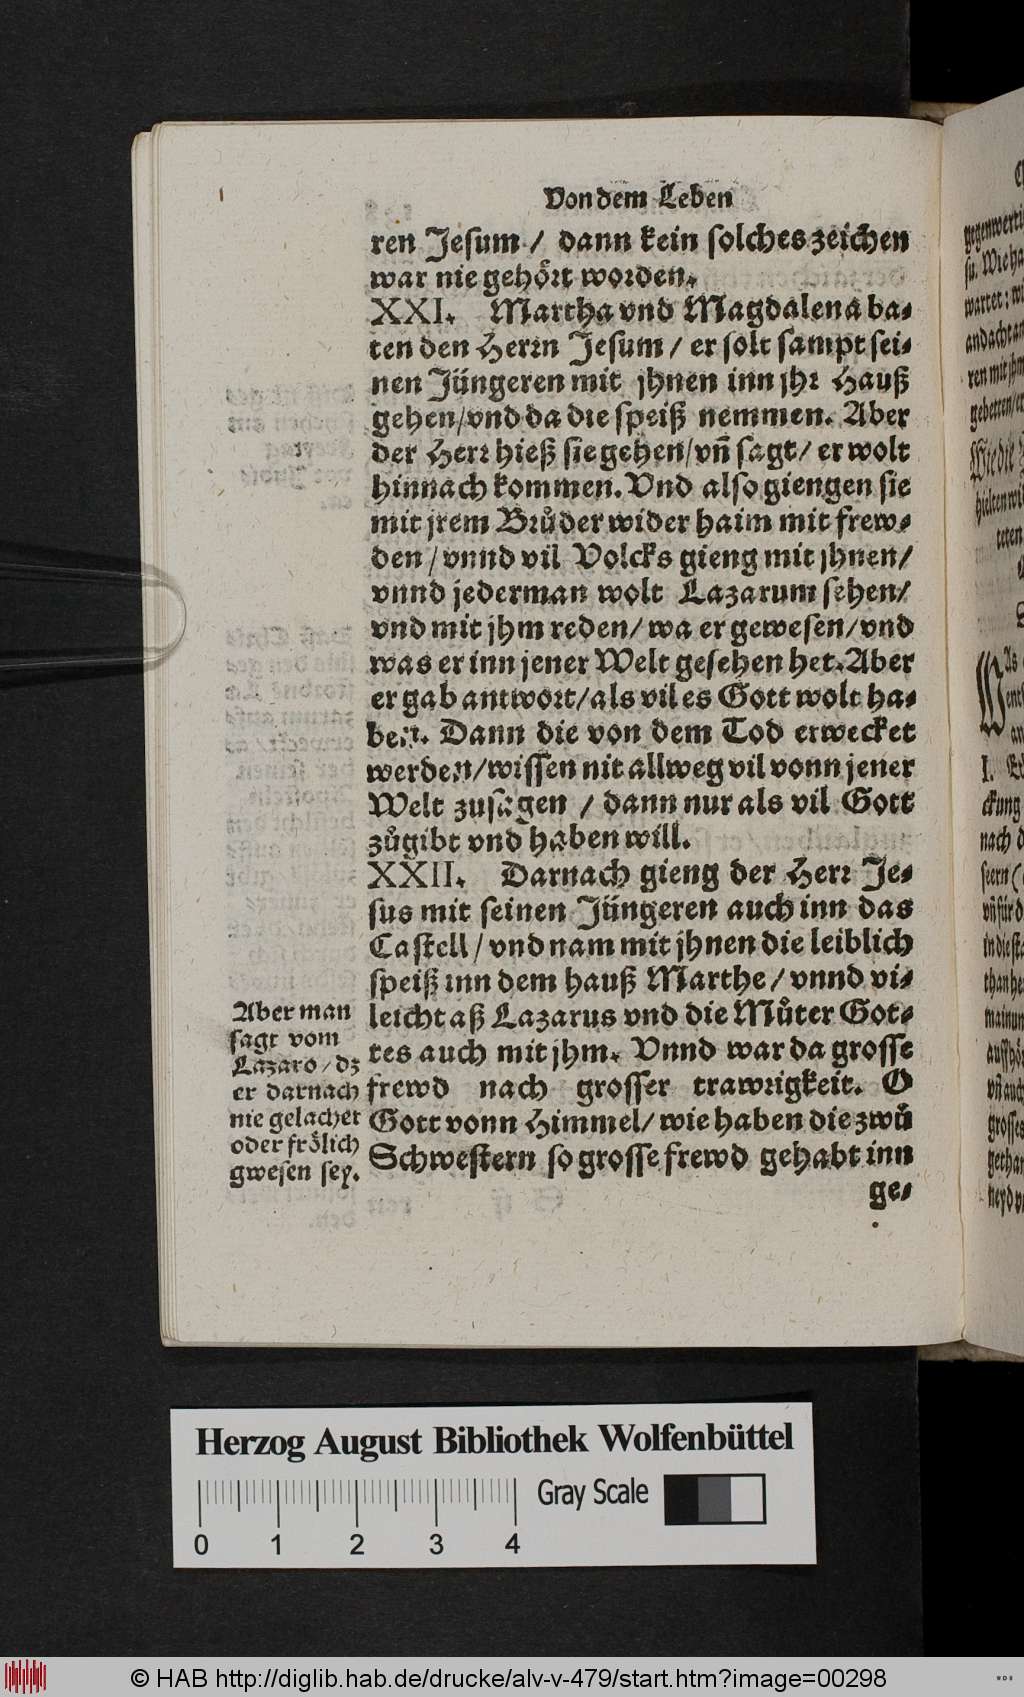 Von dem Leben
ren Jesum / dann kein solches zeichen
war nie gehört worden.
XXI. Martha vnd Magdalena ba-
ten den Herrn Jesum / er solt sampt sei-
nen Jüngeren mit jhnen inn jhr Hauß
gehen/vnd da die speiß nemmen. Aber
der Herr hieß sie gehen/vñ sagt/ er wolt
hinnach kommen. Vnd also giengen sie
mit jrem Brůder wider haim mit frew-
den / vnnd vil Volcks gieng mit jhnen/
vnnd jederman wolt Lazarum sehen/
vnd mit jhm reden/ wa er gewesen/vnd
was er inn jener Welt gesehen het. Aber
er gab antwort/als vil es Gott wolt ha-
ben. Dann die von dem Tod erwecket
werden/wissen nit allweg vil vonn jener
Welt zusagen / dann nur als vil Gott
zůgibt vnd haben will.
XXII. Darnach gieng der Herr Je-
sus mit seinen Jüngeren auch inn das
Castell/ vnd nam mit jhnen die leiblich
speiß inn dem hauß Marthe / vnnd vi-
leicht aß Lazarus vnd die Můter Got-
tes auch mit jhm. Vnnd war da grosse
frewd nach grosser trawrigkeit. O
Gott vonn Himmel/ wie haben die zwů
Schwestern so grosse frewd gehabt inn
ge-
Aber man
sagt vom
Lazaro / dz
er darnach
nie gelachet
oder frölich
gwesen sey.
gegenwerti
su. Wie ha
wartet: w
andacht an
ren mit jhm
gebetten/er
Wie die
hielten wi
teten
I.
ckung
nach d
seern (
vñ für d
in die sta
than he
mainun
auffhör
vñ auch
grosses
gethan
neyd v
Herzog August Bibliothek Wolfenbüttel
Gray Scale
0 1 2 3 4
© HAB http://diglib.hab.de/drucke/alv-v-479/start.htm?image=00298